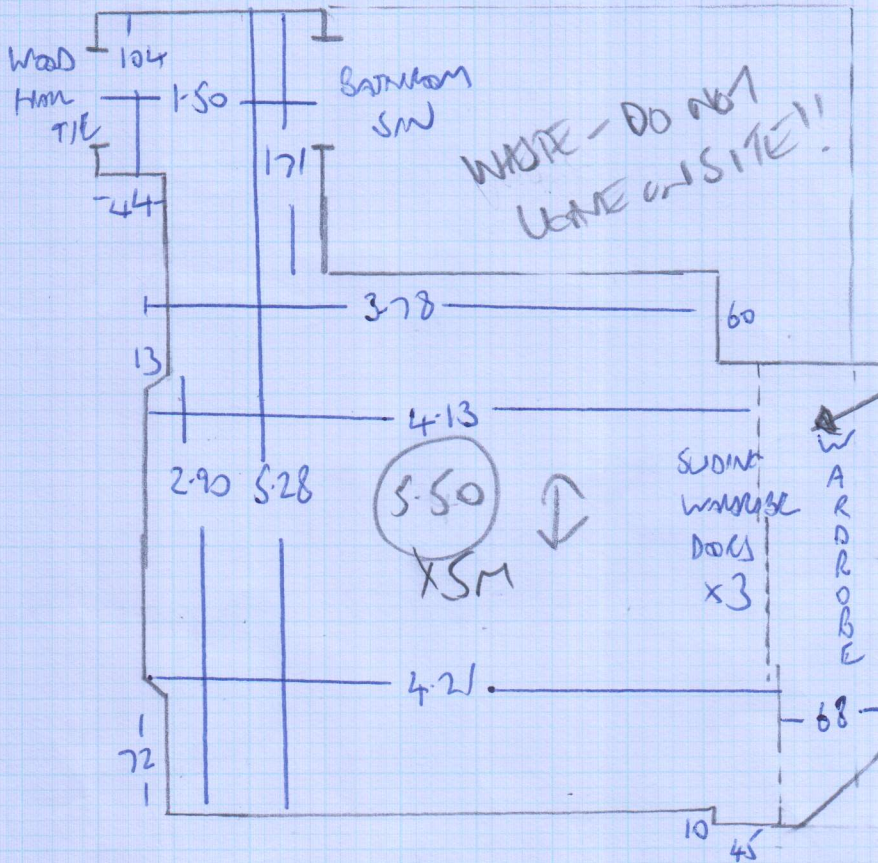 WOOD
HALL
T/E
104
1.50
BATHROOM
S/W
171
44
WASTE - DO NOT
LEAVE ON SITE!!
3.78
60
13
4.13
2.90
5.28
5.50
X5M
SLIDING
WARDROBE
DOORS
x3
WARDROBE
4.21
68
72
10
45